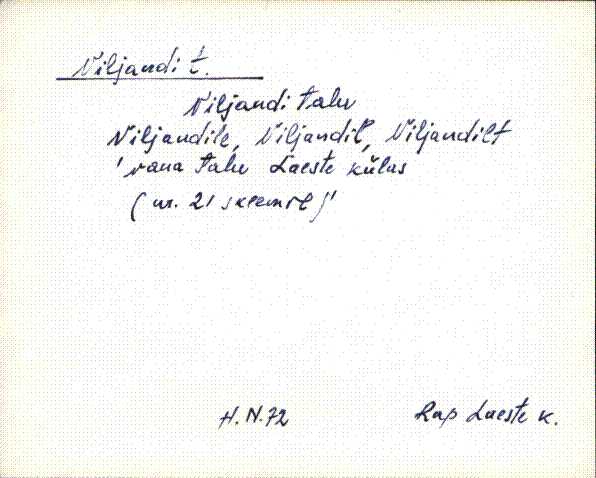 Viljandi t.
Viljandi talu
Viljandile, Viljandil, Viljandilt
'vana talu Laeste külas
(nr. 21 skeemil)'
H.N.72
Rap Laeste k.